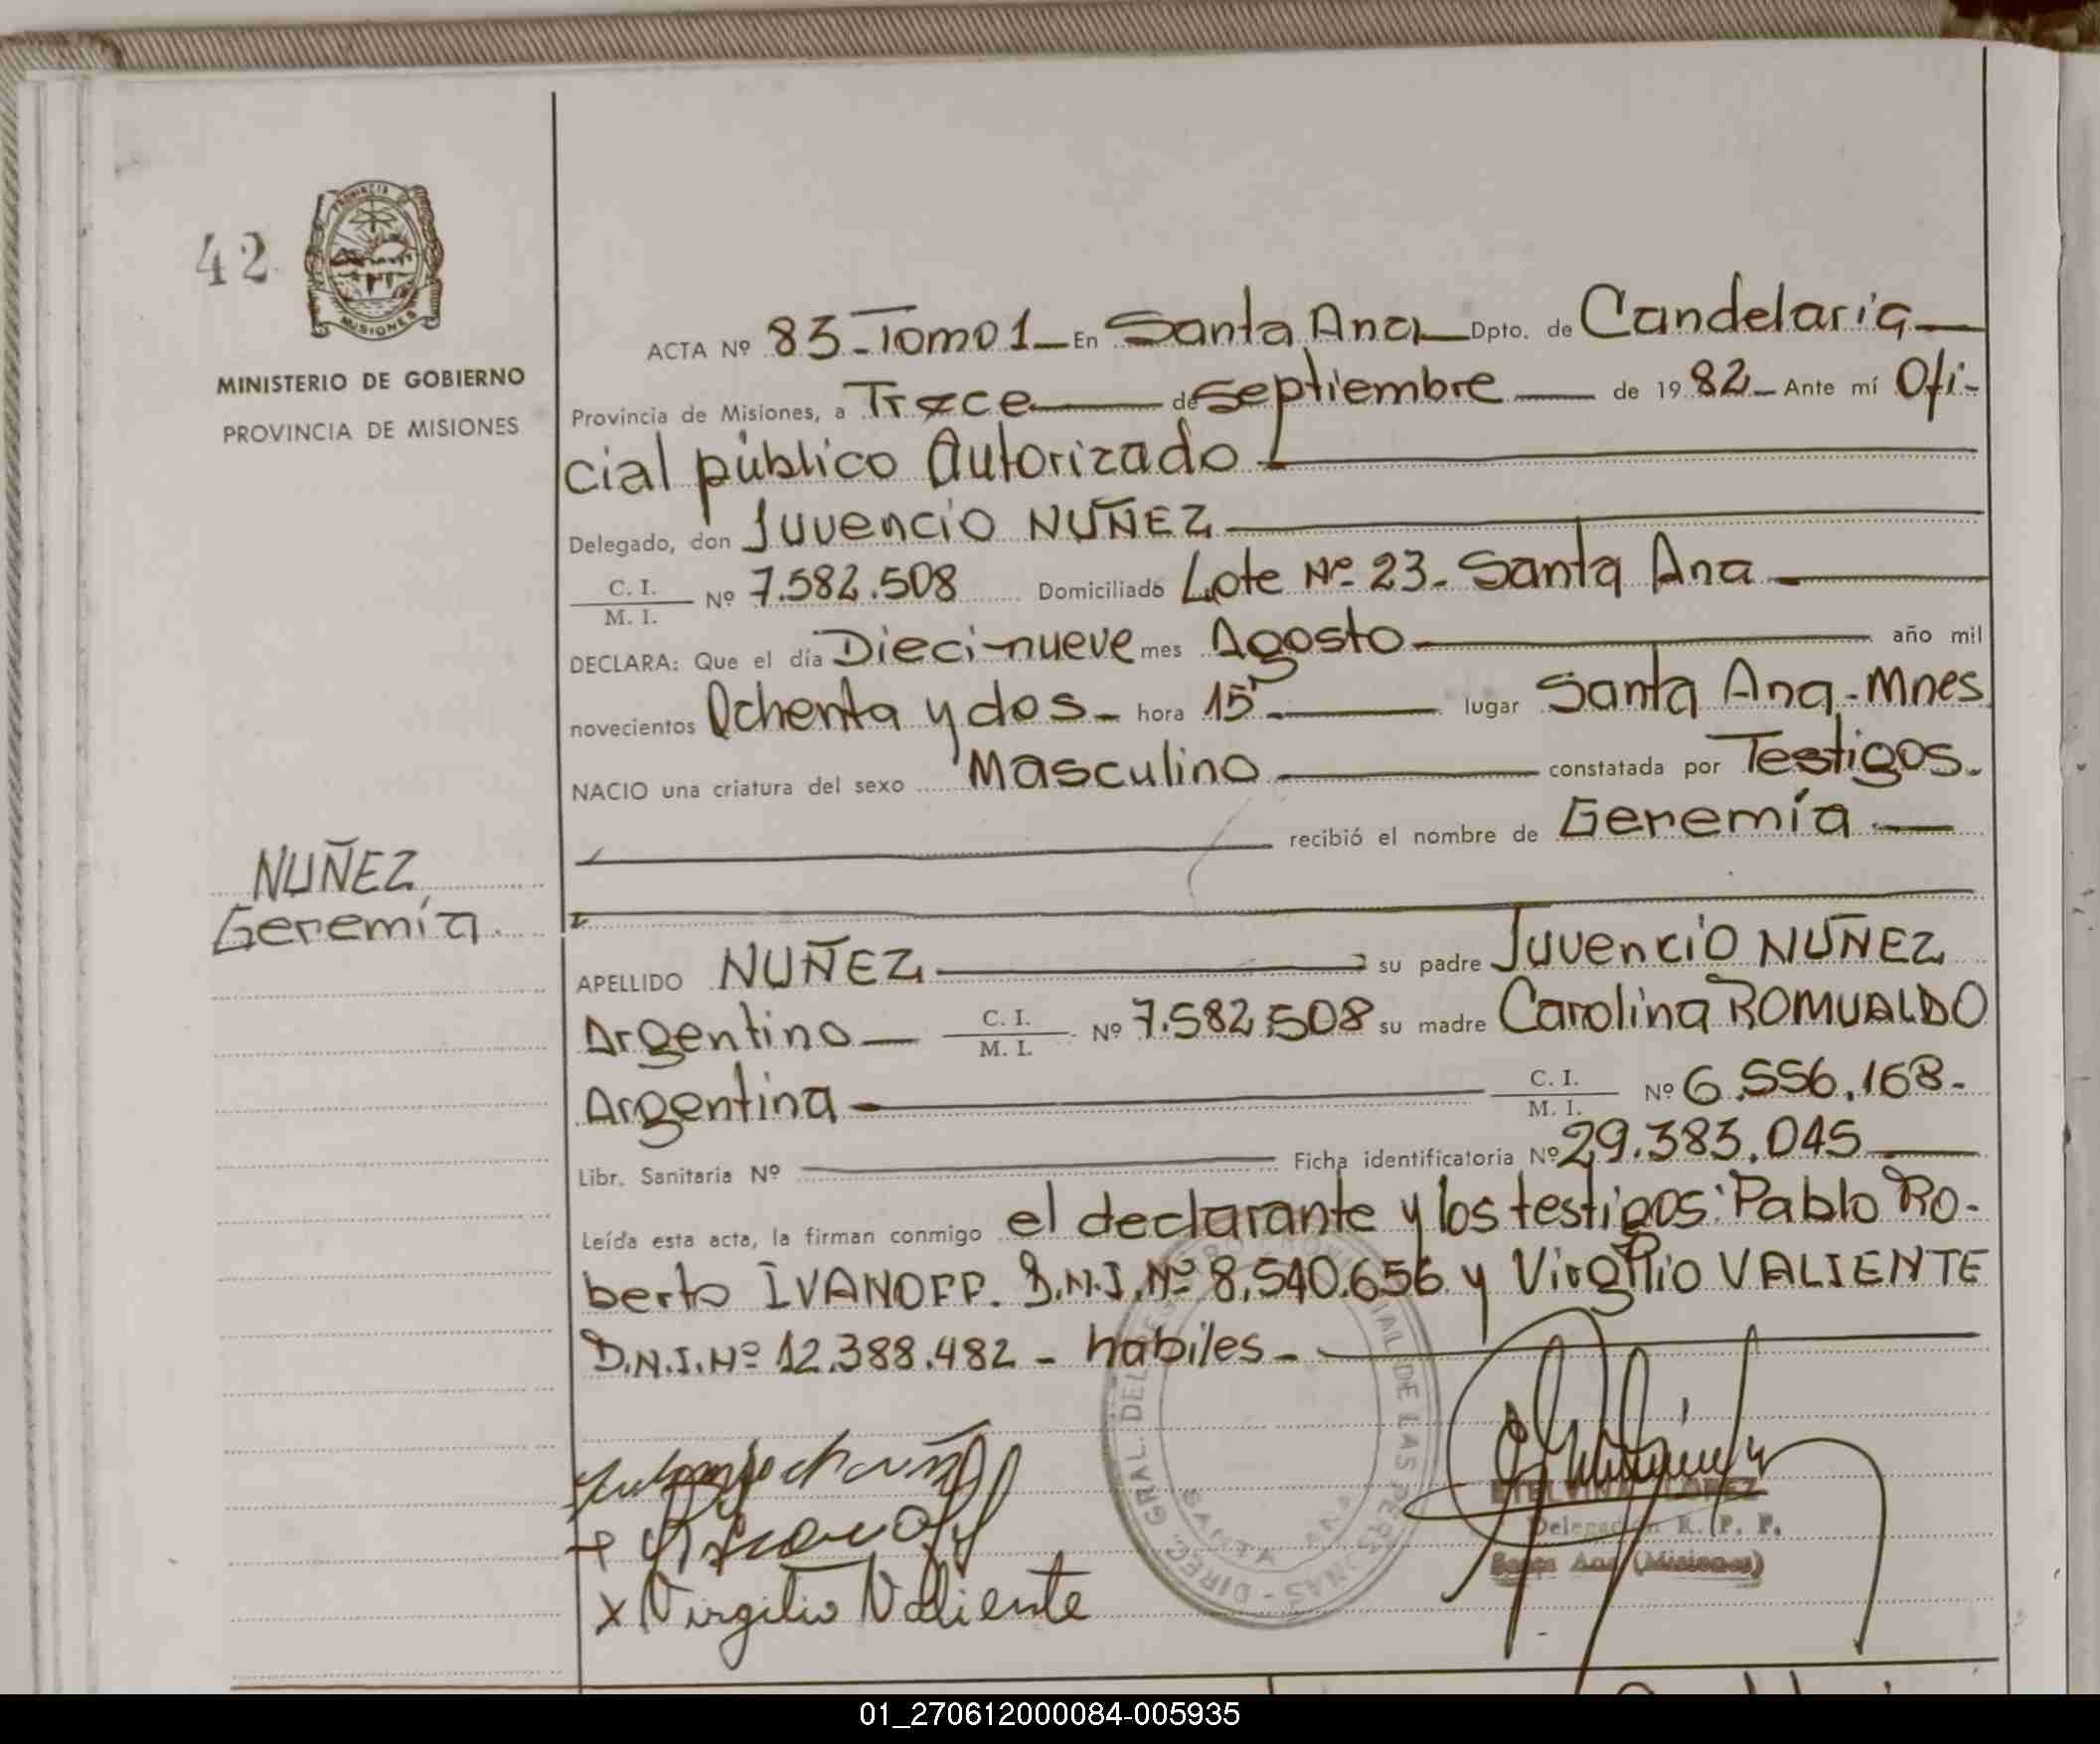 42
PROVINCIA DE
MISIONES
MINISTERIO DE GOBIERNO
PROVINCIA DE MISIONES
NUÑEZ
Geremía.
ACTA Nº 83 - Tomo 1 - En Santa Ana - Dpto. de Candelaria -
Provincia de Misiones, a Trece - de Septiembre - de 1982 - Ante mí Ofi-
cial público Autorizado
Delegado, don Juvencio NUÑEZ
C. I.
M. I. Nº 7.582.508 Domiciliado Lote Nº 23 - Santa Ana -
DECLARA: Que el día Dieci-nueve mes Agosto - año mil
novecientos Ochenta y dos - hora 15 - lugar Santa Ana - Mnes
NACIO una criatura del sexo Masculino - constatada por Testigos.
recibió el nombre de Geremía -
APELLIDO NUÑEZ su padre Juvencio NUÑEZ
Argentino - C. I.
M. I. Nº 7.582.508 su madre Carolina ROMUALDO
Argentina - C. I.
M. I. Nº 6.556.168 -
Libr. Sanitaria Nº Ficha identificatoria Nº 29.383.045
Leída esta acta, la firman conmigo el declarante y los testigos: Pablo Ro-
berto IVANOFF. D.N.I. Nº 8.540.656 y Virgilio VALIENTE
D.N.I. Nº 12.388.482 - habiles -
x Virgilio Valiente
DIREC. GRAL. DEL REGISTRO PROVINCIAL DE LAS PERSONAS -
SANTA ANA
ETELVINA LOPEZ
Delegación R. P. P.
Santa Ana (Misiones)
01_270612000084-005935